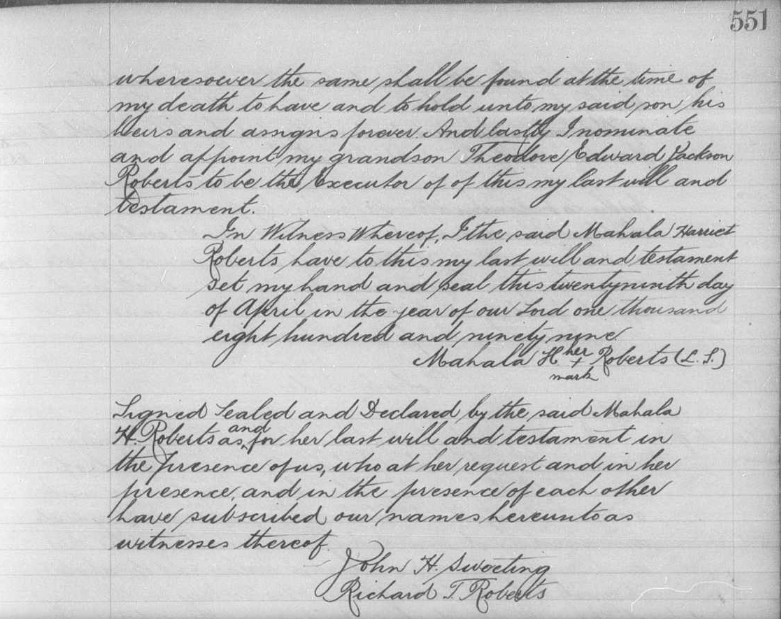 551
wheresoever the same shall be found at the time of
my death to have and to hold unto my said son his
heirs and assigns forever. And lastly I nominate
and appoint my grandson Theodore Edward Jackson
Roberts to be the Executor of of this my last will and
testament.
In Witness Whereof, I the said Mahala Harriet
Roberts have to this my last will and testament
set my hand and seal this twentyninth day
of April in the year of our Lord one thousand
eight hundred and ninety nine
Mahala H her + mark Roberts (L.S.)
Signed Sealed and Declared by the said Mahala
H. Roberts as, and for her last will and testament in
the presence of us, who at her request and in her
presence, and in the presence of each other
have subscribed our names hereunto as
witnesses thereof.
John H. Sweeting
Richard T Roberts